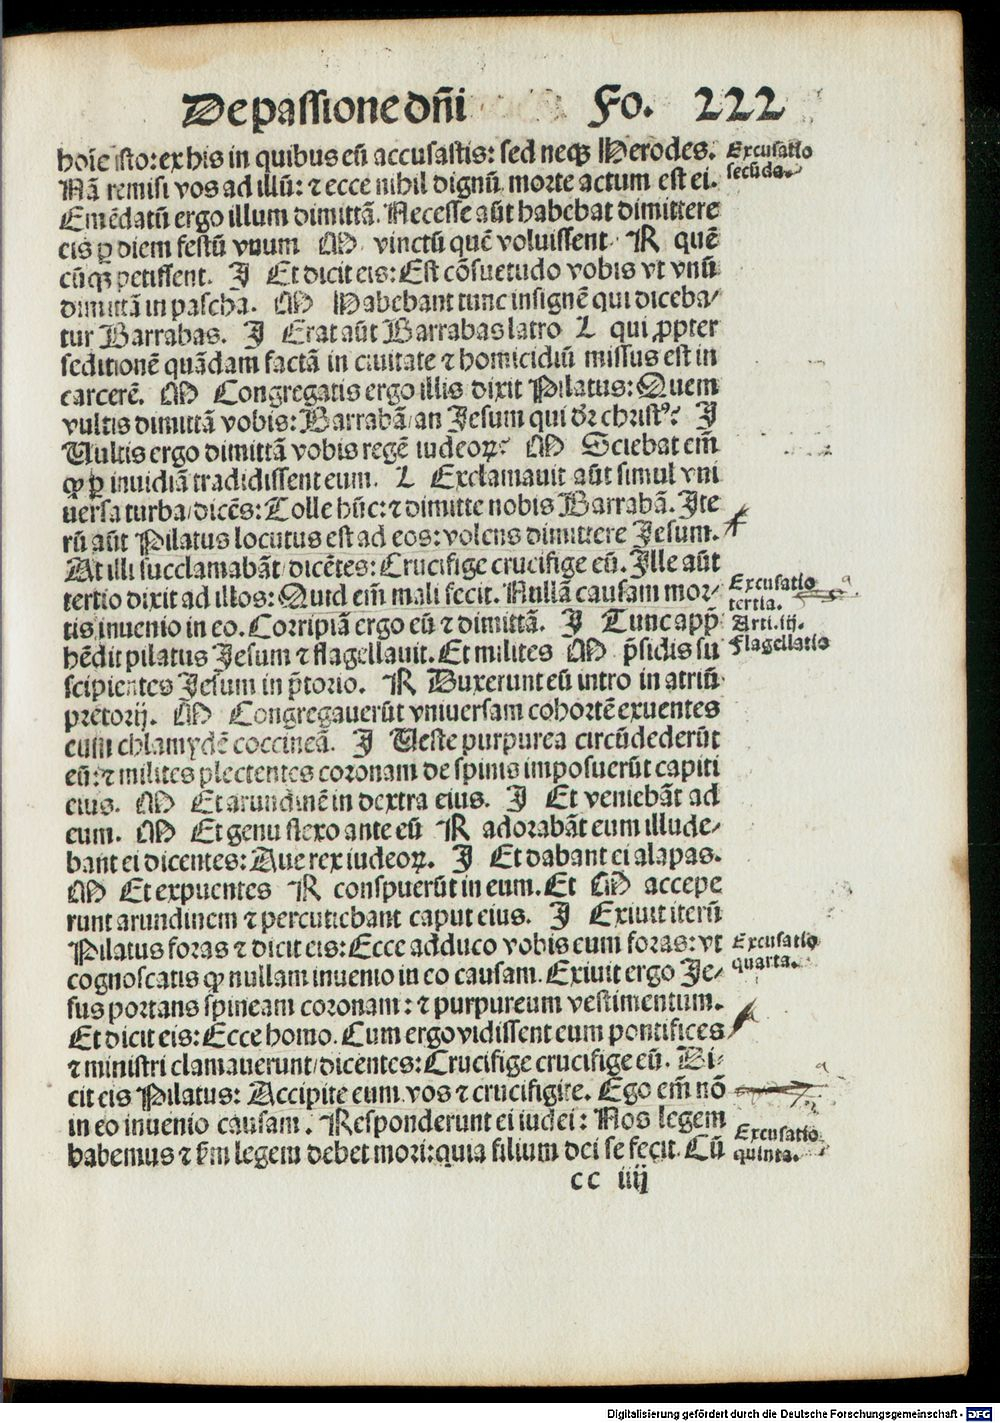 De passione dñi Fo. 222
hoīe isto: ex his in quibus eū accusastis: sed neqꝫ Herodes.
Nā remisi vos ad illū: ⁊ ecce nihil dignū morte actum est ei.
Emēdatū ergo illum dimittā. Necesse aūt habebat dimittere
eis ꝑ diem festū vnum M vinctū quē voluissent R quē
cūqꝫ petissent. J Et dicit eis: Est cōsuetudo vobis vt vnū
dimittā in pascha. M Habebant tunc insignē qui diceba/
tur Barrabas. J Erat aūt Barrabas latro L qui ꝓpter
seditionē quādam factā in ciuitate ⁊ homicidiū missus est in
carcerē. M Congregatis ergo illis dixit Pilatus: Quem
vultis dimittā vobis: Barrabā/ an Jesum qui dr̄ christꝰ? J
Uultis ergo dimittā vobis regē iudeoꝝ? M Sciebat em̄
ꝙ ꝑ inuidiā tradidissent eum. L Exclamauit aūt simul vni
uersa turba/ dicēs: Tolle hūc: ⁊ dimitte nobis Barrabā. Jte
rū aūt Pilatus locutus est ad eos: volens dimittere Jesum.
At illi succlamabāt/ dicētes: Crucifige crucifige eū. Jlle aūt
tertio dixit ad illos: Quid em̄ mali fecit. Nullā causam mor/
tis inuenio in eo. Corripiā ergo eū ⁊ dimittā. J Tunc app̄
hēdit pilatus Jesum ⁊ flagellauit. Et milites M p̄sidis su
scipientes Jesum in p̄torio. R Duxerunt eū intro in atriū
pretorij. M Congregauerūt vniuersam cohortē exuentes
eum chlamydē coccineā. J Ueste purpurea circūdederūt
eū: ⁊ milites plectentes coronam de spinis imposuerūt capiti
eius. M Et arundinē in dextra eius. J Et veniebāt ad
eum. M Et genu flexo ante eū R adorabāt eum illude/
bant ei dicentes: Aue rex iudeoꝝ. J Et dabant ei alapas.
M Et expuentes R conspuerūt in eum. Et M accepe
runt arundinem ⁊ percutiebant caput eius. J Exiuit iterū
Pilatus foras ⁊ dicit eis: Ecce adduco vobis eum foras: vt
cognoscatis ꝙ nullam inuenio in eo causam. Exiuit ergo Je/
sus portans spineam coronam: ⁊ purpureum vestimentum.
Et dicit eis: Ecce homo. Cum ergo vidissent eum pontifices
⁊ ministri clamauerunt/ dicentes: Crucifige crucifige eū. Di/
cit eis Pilatus: Accipite eum vos ⁊ crucifigite. Ego em̄ nō
in eo inuenio causam. Responderunt ei iudei: Nos legem
habemus ⁊ km̄ legem debet mori: quia filium dei se fecit. Cū
cc iiij
Excusatio
secūda.
Excusatio
tertia.
Arti. iij.
Flagellatio
Excusatio
quarta.
Excusatio
quinta.
Digitalisierung gefördert durch die Deutsche Forschungsgemeinschaft - DFG